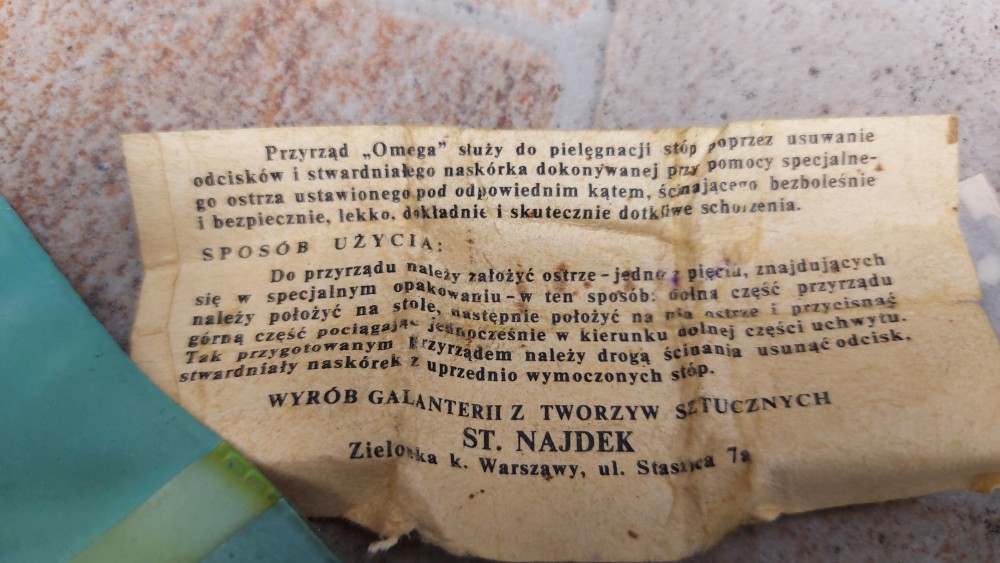 Przyrząd „Omega” służy do pielęgnacji stóp poprzez usuwanie
odcisków i stwardniałego naskórka dokonywanej przy pomocy specjalne-
go ostrza ustawionego pod odpowiednim kątem, ścinającego bezboleśnie
i bezpiecznie, lekko, dokładnie i skutecznie dotkliwe schorzenia.
SPOSÓB UŻYCIA:
Do przyrządu należy założyć ostrze - jedno z pięciu, znajdujących
się w specjalnym opakowaniu - w ten sposób: dolną część przyrządu
należy położyć na stole, następnie położyć na nią ostrze i przycisnąć
górną część pociągając jednocześnie w kierunku dolnej części uchwytu.
Tak przygotowanym przyrządem należy drogą ścinania usunąć odcisk,
stwardniały naskórek z uprzednio wymoczonych stóp.
WYRÓB GALANTERII Z TWORZYW SZTUCZNYCH
ST. NAJDEK
Zielonka k. Warszawy, ul. Staszica 7a